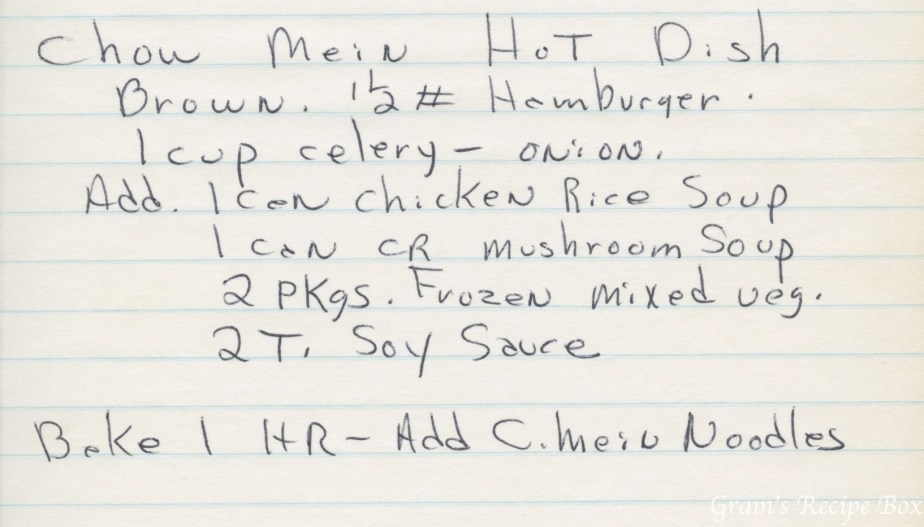 Chow Mein Hot Dish
Brown. 1 1/2 # Hamburger.
1 cup celery - onion.
Add. 1 can chicken Rice Soup
1 can CR mushroom Soup
2 PKgs. Frozen mixed veg.
2 T. Soy Sauce
Bake 1 HR - Add C. Mein Noodles
Gram's Recipe Box